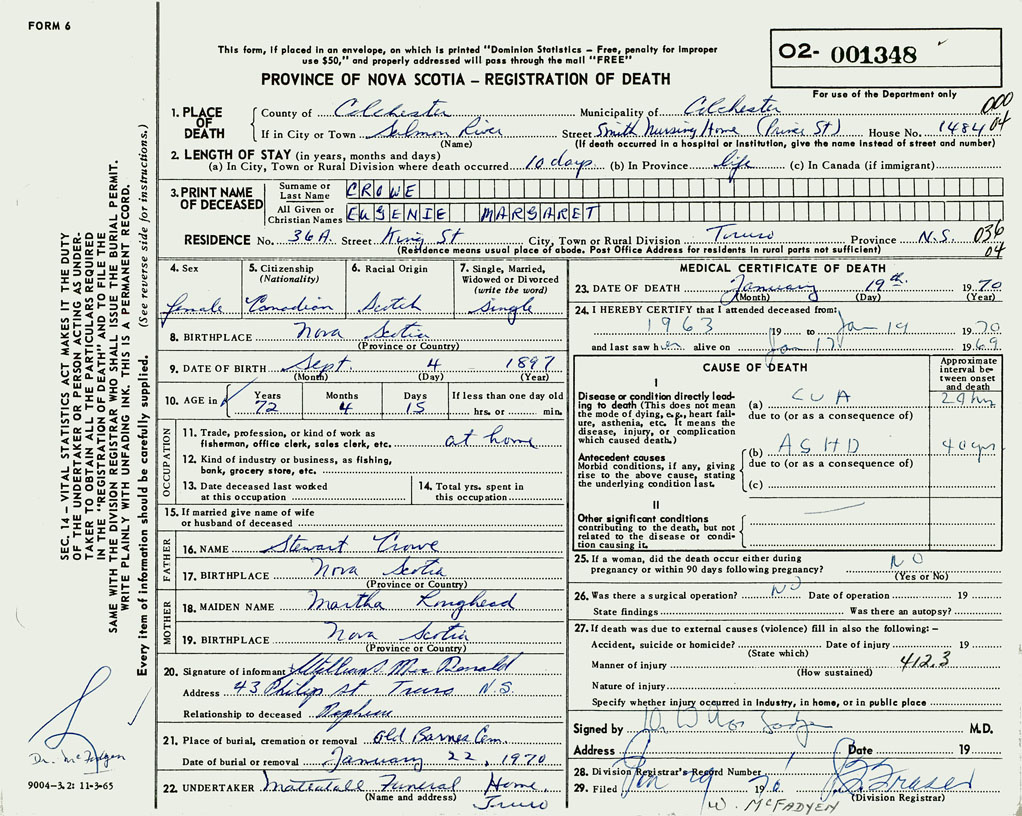 FORM 6
This form, if placed in an envelope, on which is printed "Dominion Statistics – Free, penalty for improper
use $50," and properly addressed will pass through the mail "FREE"
PROVINCE OF NOVA SCOTIA – REGISTRATION OF DEATH
02- 001348
For use of the Department only
000
04
1. PLACE OF DEATH
County of Colchester Municipality of Colchester
If in City or Town Salmon River Street Smith Nursing Home (Prince St) House No. 1484
(Name) (If death occurred in a hospital or institution, give the name instead of street and number)
2. LENGTH OF STAY (in years, months and days)
(a) In City, Town or Rural Division where death occurred 10 days (b) In Province life (c) In Canada (if immigrant)
3. PRINT NAME OF DECEASED
Surname or Last Name CROWE
All Given or Christian Names EUGENIE MARGARET
RESIDENCE No. 36A Street King St City, Town or Rural Division Truro Province N.S. 036
04
(Residence means usual place of abode. Post Office Address for residents in rural parts not sufficient)
4. Sex
female
5. Citizenship (Nationality)
Canadian
6. Racial Origin
Scotch
7. Single, Married, Widowed or Divorced (write the word)
Single
8. BIRTHPLACE Nova Scotia
(Province or Country)
9. DATE OF BIRTH Sept. 4 1897
(Month) (Day) (Year)
10. AGE in Years Months Days If less than one day old
72 4 15 hrs. or min.
OCCUPATION
11. Trade, profession, or kind of work as fisherman, office clerk, sales clerk, etc. at home
12. Kind of industry or business, as fishing, bank, grocery store, etc.
13. Date deceased last worked at this occupation
14. Total yrs. spent in this occupation
15. If married give name of wife or husband of deceased
FATHER
16. NAME Stewart Crowe
17. BIRTHPLACE Nova Scotia
(Province or Country)
MOTHER
18. MAIDEN NAME Martha Longhead
19. BIRTHPLACE Nova Scotia
(Province or Country)
20. Signature of informant MacDonald
Address 43 Philip St Truro N.S.
Relationship to deceased Nephew
21. Place of burial, cremation or removal Old Barns Cem.
Date of burial or removal January 22, 1970
22. UNDERTAKER Mattatall Funeral Home,
(Name and address) Truro
MEDICAL CERTIFICATE OF DEATH
23. DATE OF DEATH January 19th 1970
(Month) (Day) (Year)
24. I HEREBY CERTIFY that I attended deceased from:
1963 19 to Jan 19 1970
and last saw her alive on Jan 17 1969
CAUSE OF DEATH
Approximate interval between onset and death
I
Disease or condition directly leading to death (This does not mean the mode of dying, e.g., heart failure, asthenia, etc. It means the disease, injury, or complication which caused death.)
(a) CVA
due to (or as a consequence of)
Antecedent causes
Morbid conditions, if any, giving rise to the above cause, stating the underlying condition last.
(b) ASHD
due to (or as a consequence of)
(c)
II
Other significant conditions
contributing to the death, but not related to the disease or condition causing it.
25. If a woman, did the death occur either during pregnancy or within 90 days following pregnancy? NO
(Yes or No)
26. Was there a surgical operation? NO Date of operation 19
State findings Was there an autopsy?
27. If death was due to external causes (violence) fill in also the following: –
Accident, suicide or homicide? Date of injury 19
(State which)
Manner of injury 412.3
(How sustained)
Nature of injury
Specify whether injury occurred in industry, in home, or in public place
Signed by M.D.
Address Date 19
28. Division Registrar's Record Number 1
29. Filed Jan 19 1970 Fraser
(Division Registrar)
W. MCFADYEN
SEC. 14 – VITAL STATISTICS ACT MAKES IT THE DUTY
OF THE UNDERTAKER OR PERSON ACTING AS UNDER-
TAKER TO OBTAIN ALL THE PARTICULARS REQUIRED
IN THE "REGISTRATION OF DEATH" AND TO FILE THE
SAME WITH THE DIVISION REGISTRAR WHO SHALL ISSUE THE BURIAL PERMIT.
WRITE PLAINLY WITH UNFADING INK. THIS IS A PERMANENT RECORD.
Every item of information should be carefully supplied. (See reverse side for instructions.)
Dr. McFadyen
9004-3.2: 11-3-65